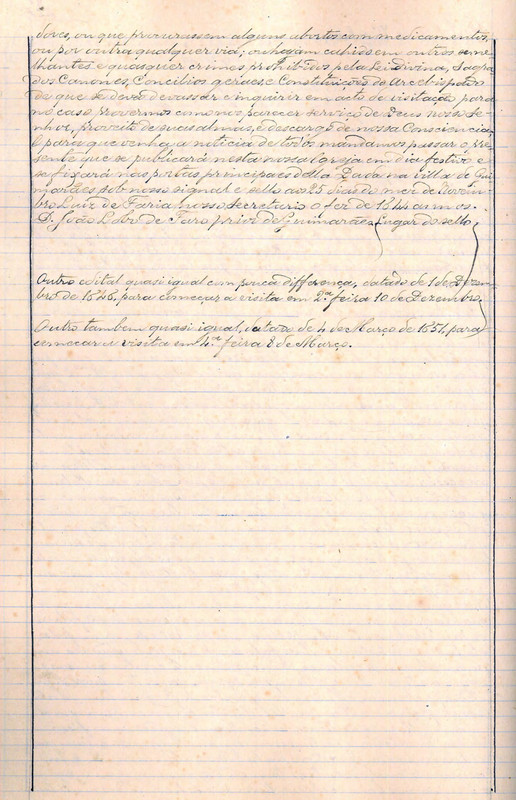 dores, ou que procurassem alguns abortos com medicamentos,
ou por outra qualquer via; ou hajam cahido em outros seme-
lhantes e quasquer crimes prohibidos pela Lei Divina, Sagra-
dos Canones, Concilios geraes, e Constituições do Arcebispado
de que se deva devassar e inquirir em acto de visitação para
no caso provermos como nos parecer serviço de Deus nosso Se-
nhor, proveito de suas almas, e descargo de nossa Consciencia.
E para que venha á noticia de todos mandamos passar o pre-
sente que se publicará nesta nossa Igreja em dia festivo e
se fixará nas portas principaes d'ella. Dada na villa de Gui-
marães sob nosso signal e sello aos 25 dias do mez de Novem-
bro Luiz de Faria nosso Secretario o fez de 1644 annos.
D. João Lobo de Faro, prior de Guimarães. Lugar do sello.
Outro edital quasi igual com pouca differença, datado de 1 de Dezem-
bro de 1646, para começar a visita em 2ª feira 10 de Dezembro.
Outro tambem quasi igual, datado de 4 de Março de 1651, para
começar a visita em 4ª feira 8 de Março.